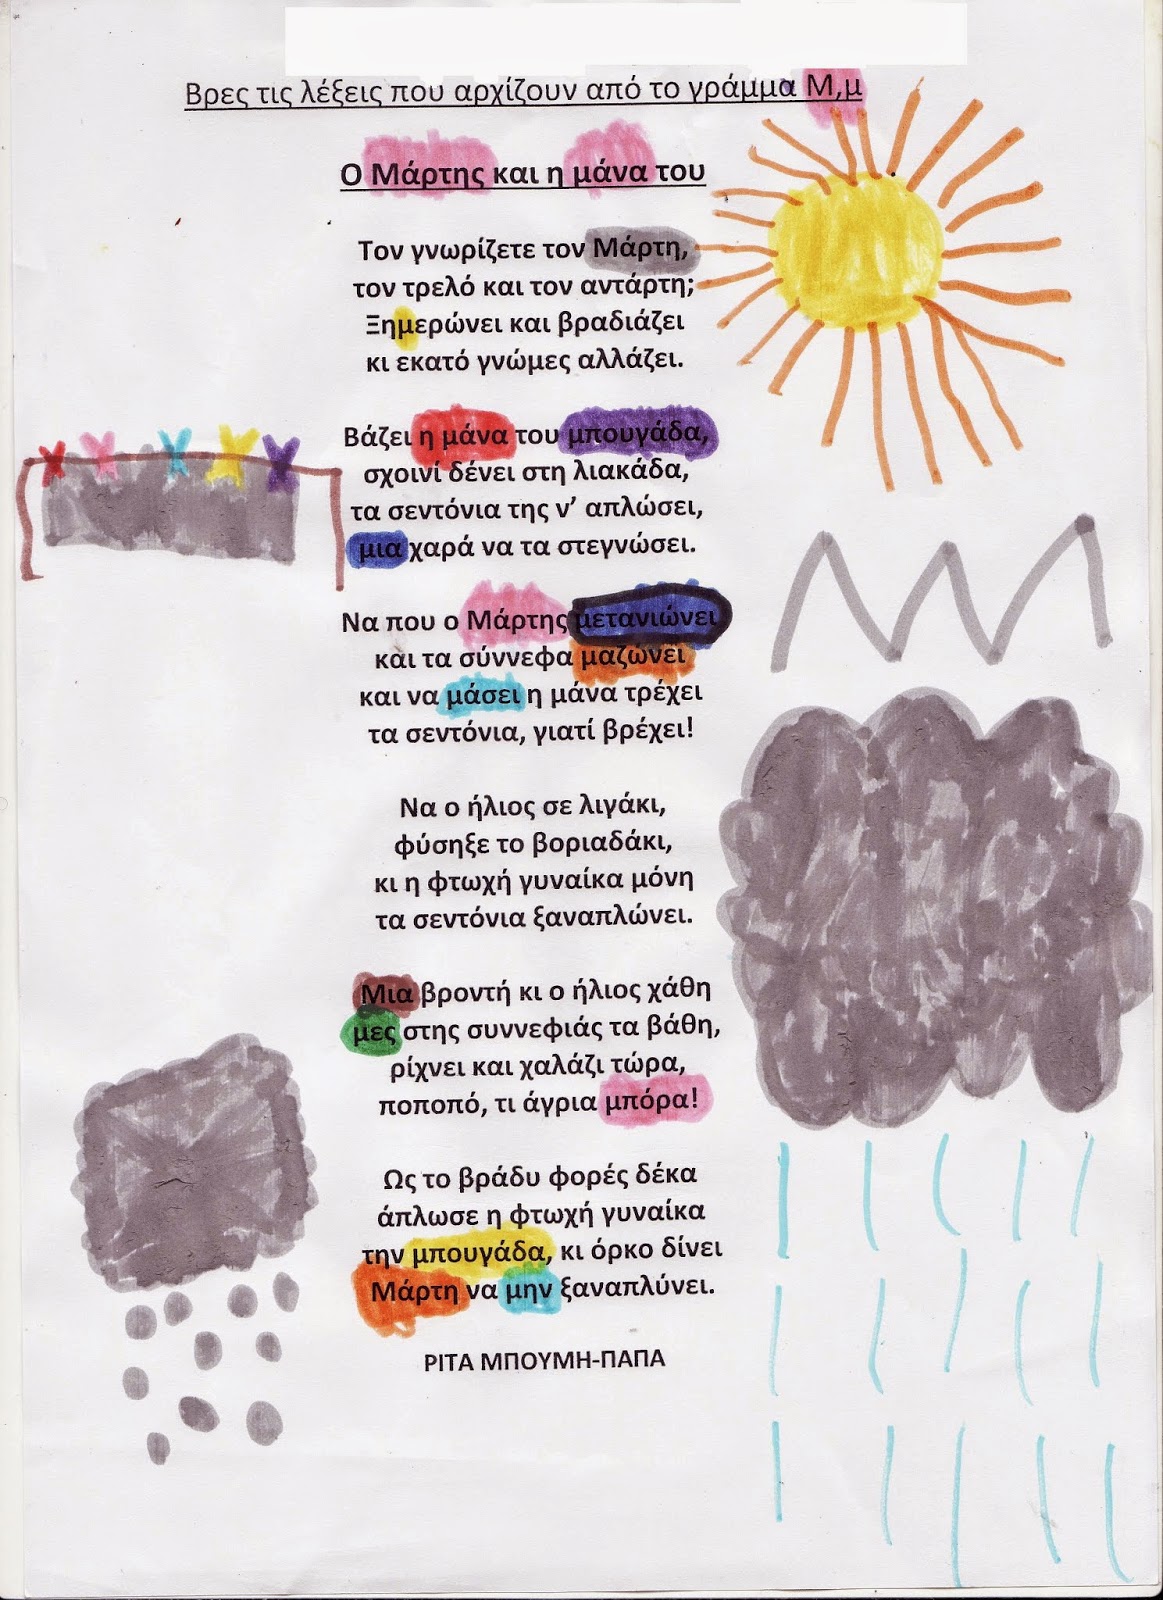 Βρες τις λέξεις που αρχίζουν από το γράμμα Μ,μ
Ο Μάρτης και η μάνα του
Τον γνωρίζετε τον Μάρτη,
τον τρελό και τον αντάρτη;
Ξημερώνει και βραδιάζει
κι εκατό γνώμες αλλάζει.
Βάζει η μάνα του μπουγάδα,
σχοινί δένει στη λιακάδα,
τα σεντόνια της ν’ απλώσει,
μια χαρά να τα στεγνώσει.
Να που ο Μάρτης μετανιώνει
και τα σύννεφα μαζώνει
και να μάσει η μάνα τρέχει
τα σεντόνια, γιατί βρέχει!
Να ο ήλιος σε λιγάκι,
φύσηξε το βοριαδάκι,
κι η φτωχή γυναίκα μόνη
τα σεντόνια ξαναπλώνει.
Μια βροντή κι ο ήλιος χάθη
μες στης συννεφιάς τα βάθη,
ρίχνει και χαλάζι τώρα,
ποποπό, τι άγρια μπόρα!
Ως το βράδυ φορές δέκα
άπλωσε η φτωχή γυναίκα
την μπουγάδα, κι όρκο δίνει
Μάρτη να μην ξαναπλύνει.
ΡΙΤΑ ΜΠΟΥΜΗ-ΠΑΠΑ